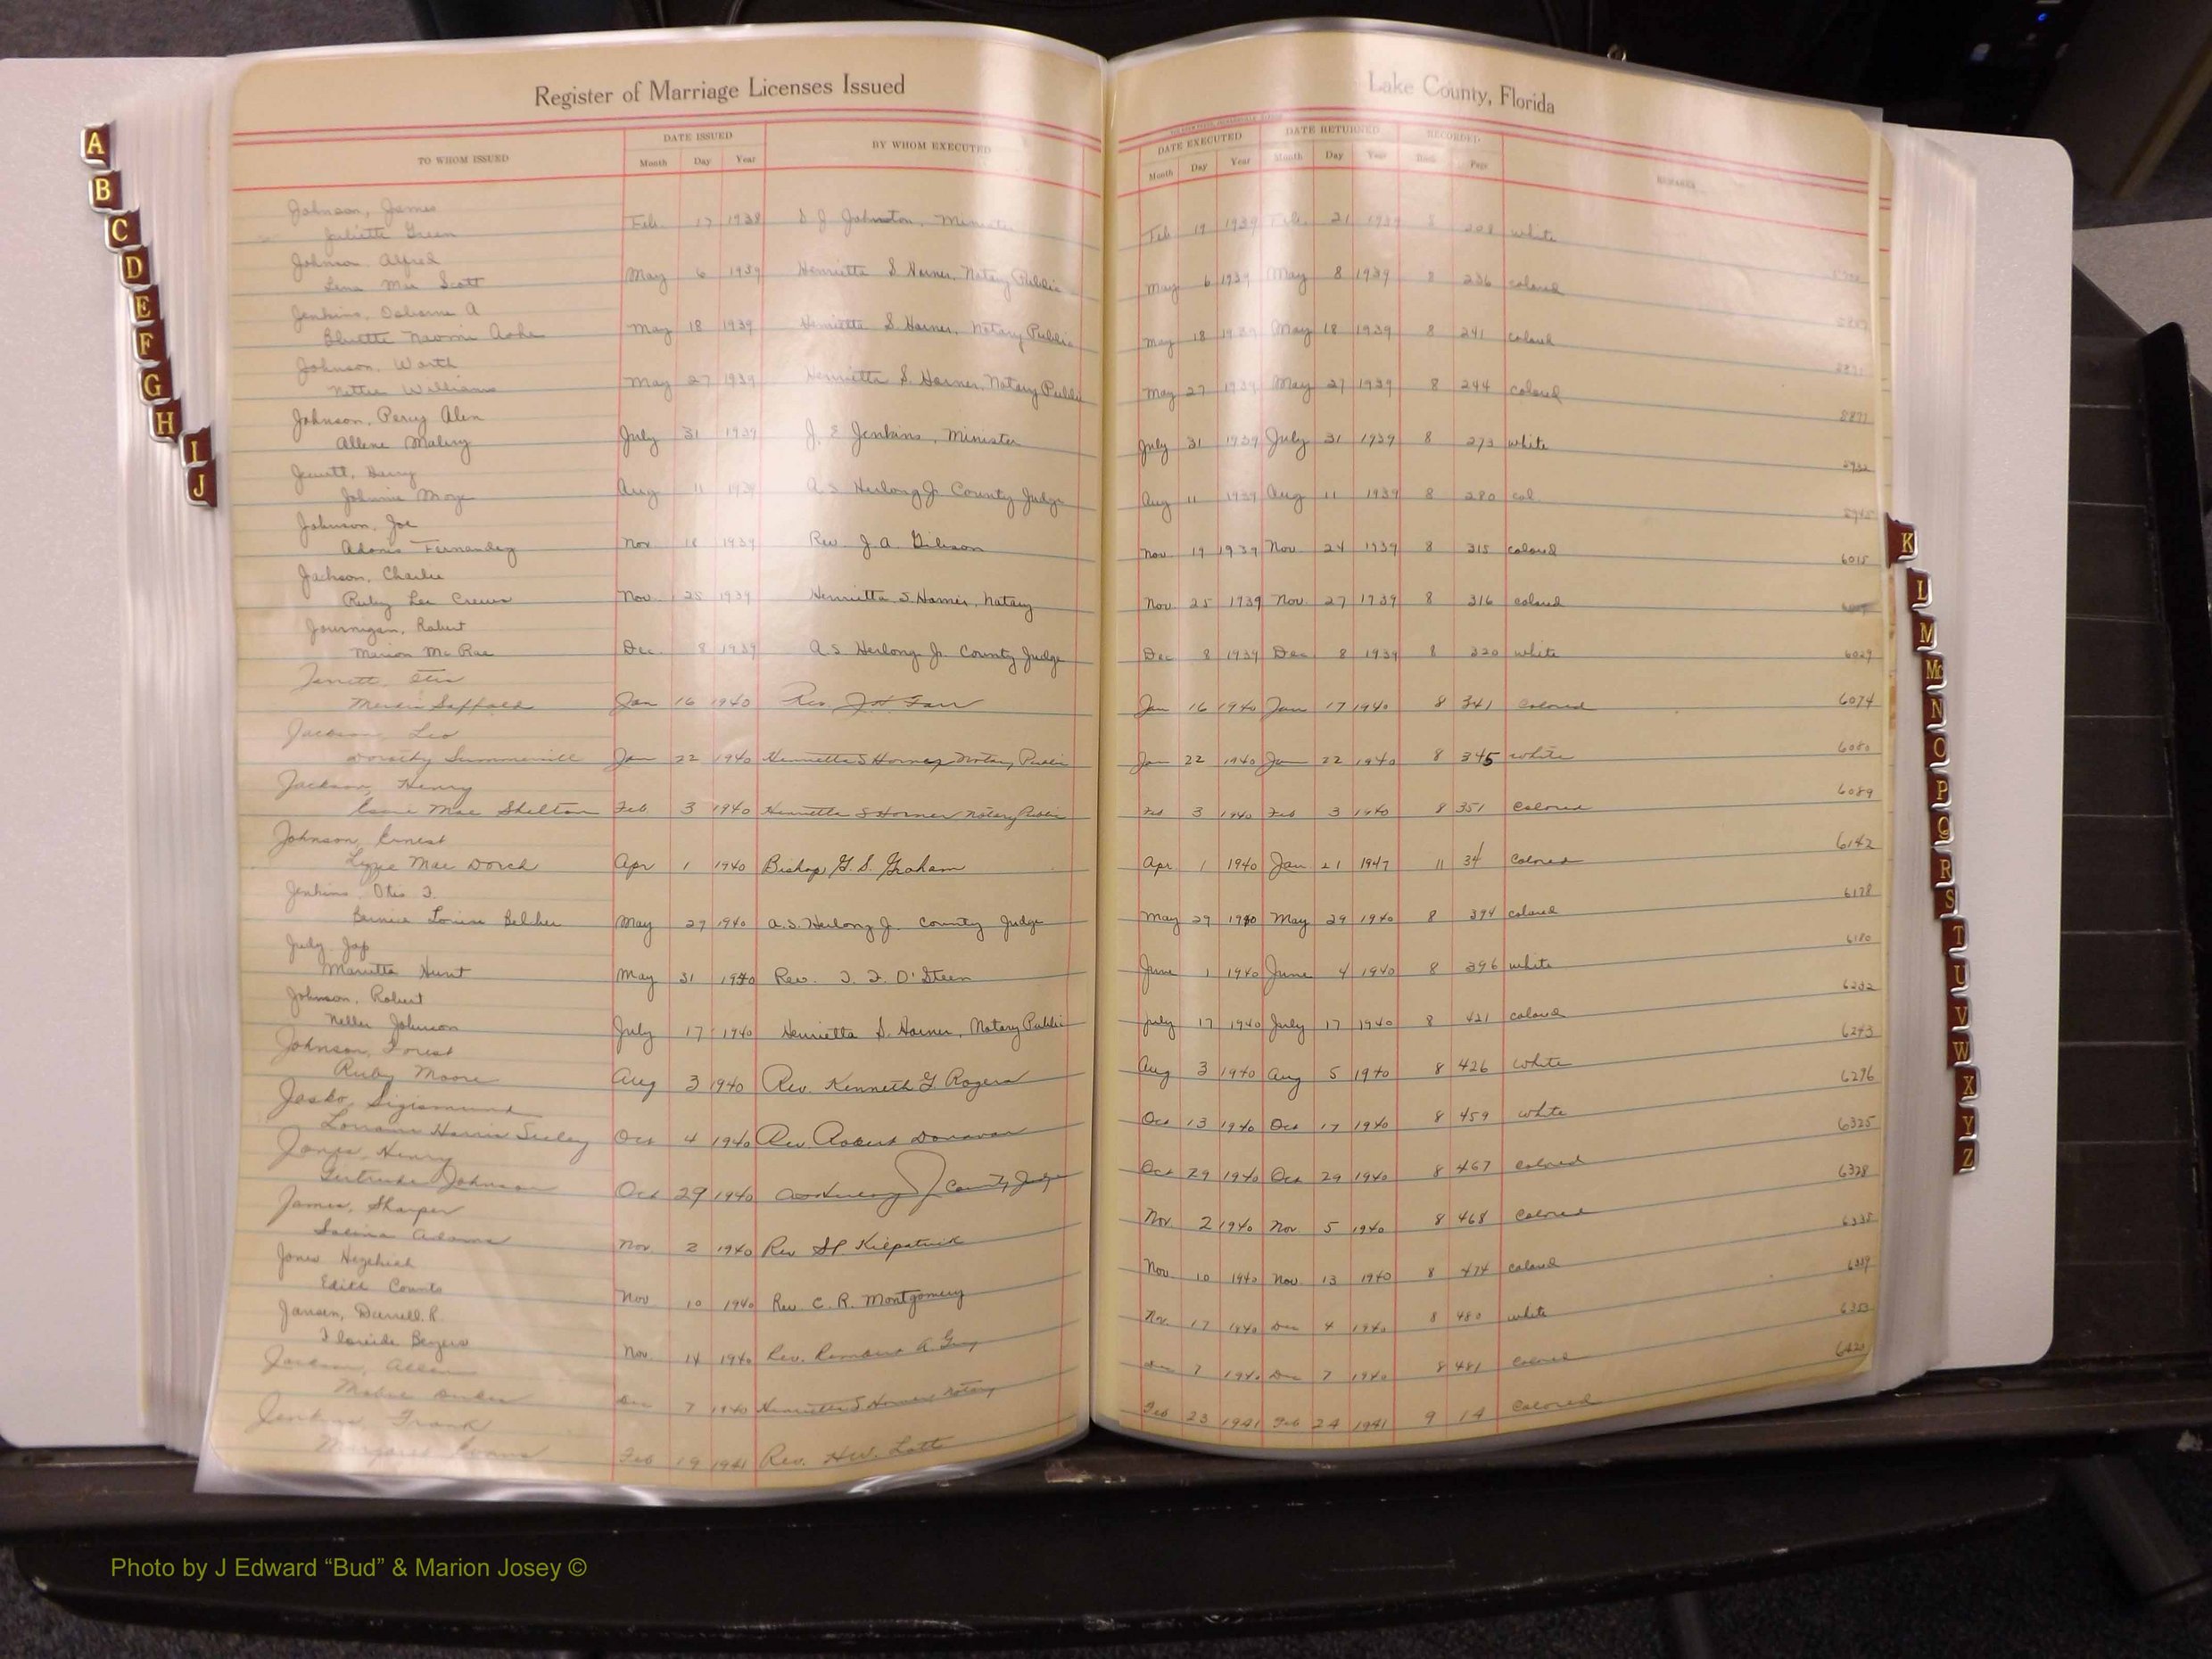 Register of Marriage Licenses Issued
Lake County, Florida
TO WHOM ISSUED DATE ISSUED Month Day Year BY WHOM EXECUTED
DATE EXECUTED Month Day Year DATE RETURNED Month Day Year RECORDED Page
Johnson, James
Juliette Green Feb. 17 1938 Johnston, Minister Feb 19 1939 Feb. 21 1939 8 208 white
Johnson Alfred
Lena Mae Scott May 6 1939 Henrietta S Harner, Notary Public May 6 1939 May 8 1939 8 236 colored
Jenkins, Osborne A
Naomi May 18 1939 Henrietta S. Harner, Notary Public May 18 1939 May 18 1939 8 241 colored
Johnson, Worth
Nettie Williams May 27 1939 Henrietta S. Harner, Notary Public May 27 1939 May 27 1939 8 244 colored
Johnson, Percy
Allene July 31 1939 J. E Jenkins, Minister July 31 1939 July 31 1939 8 273 white
Harry
Johnnie Aug 11 1939 A S Herlong Jr County Judge Aug 11 1939 Aug 11 1939 8 280 col.
Johnson, Joe
Adonis Fernandez Nov 1939 Rev J. A. Gibson Nov 19 1939 Nov 24 1939 8 315 colored 6015
Jackson, Charlie
Ruby Lee Crews Nov. 25 1939 Henrietta S Harner, Notary Nov 25 1939 Nov. 27 1939 8 316 colored
Journigan, Robert
Marion McRae Dec. 8 1939 A S Herlong Jr. County Judge Dec 8 1939 Dec 8 1939 8 320 white 6029
Otis
Saffold Jan 16 1940 Rev. Jan 16 1940 Jan 17 1940 8 341 Colored 6074
Jackson, Leo
Dorothy Summerill Jan 22 1940 Henrietta S Horner Notary Public Jan 22 1940 Jan 22 1940 8 345 white 6080
Jackson, Henry
Mae Shelton Feb. 3 1940 Henrietta S Horner Notary Public Feb 3 1940 Feb 3 1940 8 351 Colored 6089
Johnson, Ernest
Mae Dorch Apr 1 1940 Bishop G. S. Graham Apr 1 1940 Jan 21 1947 11 34 Colored 6142
Jenkins, Otis
Bernice Louise Belcher May 27 1940 A. S. Herlong Jr. County Judge May 29 1940 May 29 1940 8 394 colored 6178
Judy
Marietta Hunt May 31 1940 Rev. O'Steen June 1 1940 June 4 1940 8 396 white 6180
Johnson, Robert
Johnson July 17 1940 Henrietta S. Harner, Notary Public July 17 1940 July 17 1940 8 421 colored 6232
Johnson, Forest
Ruby Moore Aug 3 1940 Rev. Kenneth G Rogers Aug 3 1940 Aug 5 1940 8 426 White 6243
Jasko, Sigismund
Lorraine Harris Seeley Oct 4 1940 Rev Robert Donovan Oct 13 1940 Oct 17 1940 8 459 White 6296
Jones, Henry
Gertrude Johnson Oct 29 1940 County Judge Oct 29 1940 Oct 29 1940 8 467 Colored 6325
James, Sharper
Adams Nov 2 1940 Rev Kilpatrick Nov 2 1940 Nov 5 1940 8 468 Colored 6328
Jones Hezekiah
Edith Counts Nov 10 1940 Rev. C. R. Montgomery Nov. 10 1940 Nov. 13 1940 8 474 colored 6335
Darrell R.
Nov. 14 1940 Rev. Nov. 17 1940 Dec 4 1940 8 480 white 6339
Jackson, Allen
Dec 7 1940 Henrietta S Horner Notary Dec 7 1940 Dec 7 1940 8 481 Colored
Jenkins, Frank
Margaret Evans Feb 19 1941 Rev. H.W. Feb 23 1941 Feb 24 1941 9 14 Colored
A
B
C
D
E
F
G
H
I
J
K
L
M
Mc
N
O
P
Q
R
S
T
U
V
W
X
Y
Z
Photo by J Edward “Bud” & Marion Josey ©